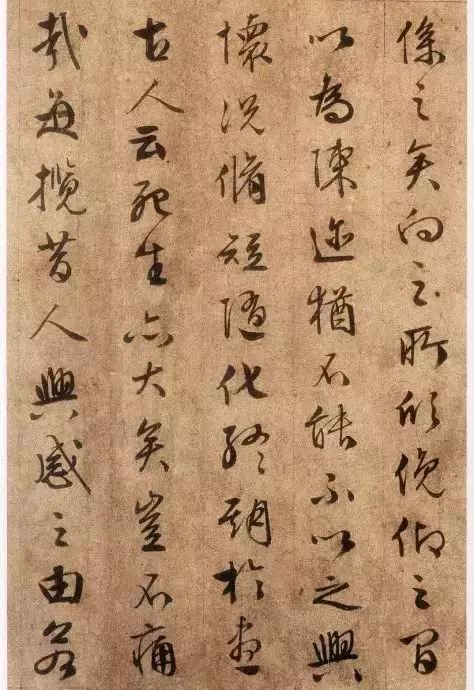 係之矣向之所欣俛仰之間
以為陳迹猶不能不以之興
懷況脩短隨化終期於盡
古人云死生亦大矣豈不痛
哉每攬昔人興感之由若